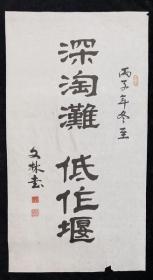 丙子年冬至
深淘灘 低作堰
文林書